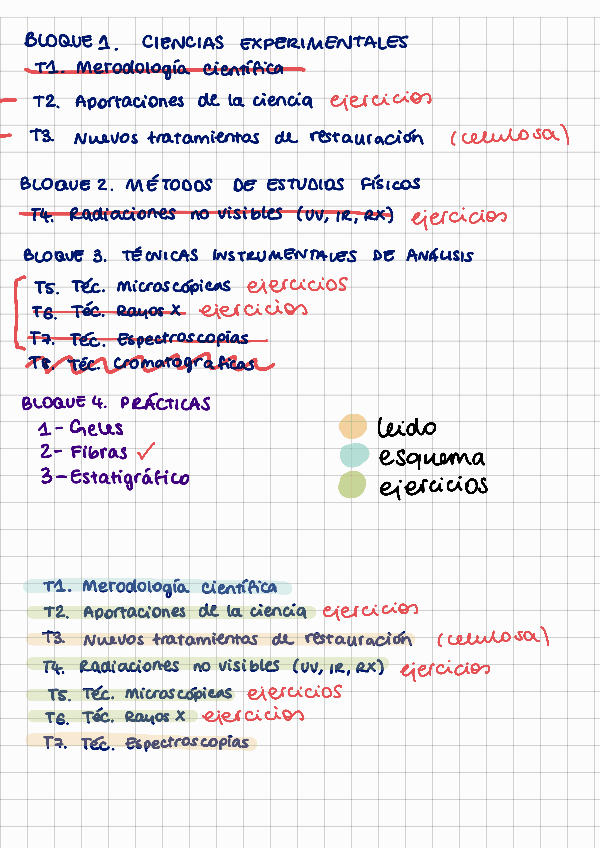 BLOQUE 1. CIENCIAS EXPERIMENTALES
T1. Metodología científica
T2. Aportaciones de la ciencia ejercicios
T3. Nuevos tratamientos de restauración (celulosa)
BLOQUE 2. MÉTODOS DE ESTUDIOS FÍSICOS
T4. Radiaciones no visibles (UV, IR, RX) ejercicios
BLOQUE 3. TÉCNICAS INSTRUMENTALES DE ANÁLISIS
T5. Téc. Microscópicas ejercicios
T6. Téc. Rayos X ejercicios
T7. Téc. Espectroscopías
T8. Téc. Cromatográficas
BLOQUE 4. PRÁCTICAS
1- Geles
2- Fibras ✓
3- Estatigráfico
leido
esquema
ejercicios
T1. Metodología científica
T2. Aportaciones de la ciencia ejercicios
T3. Nuevos tratamientos de restauración (celulosa)
T4. Radiaciones no visibles (UV, IR, RX) ejercicios
T5. Téc. Microscópicas ejercicios
T6. Téc. Rayos X ejercicios
T7. Téc. Espectroscopías